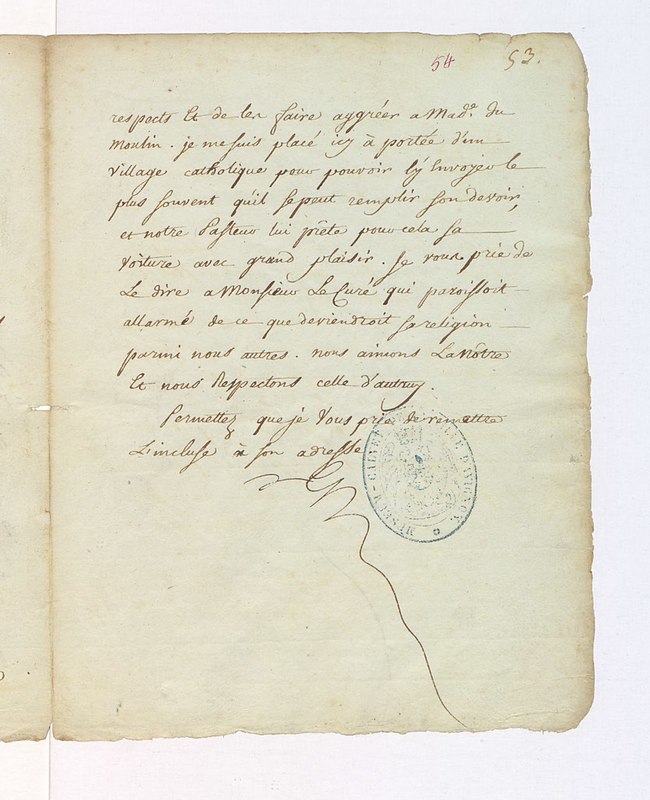 54 53.
respects et de les faire aggréer a Mad.e du
Moulin. je me suis placé icy à portée d'un
village catholique pour pouvoir l'y Envoyer le
plus souvent qu'il se peut remplir son devoir,
et notre Pasteur lui prête pour cela sa
voiture avec grand plaisir. Je vous prie de
Le dire a Monsieur Le Curé qui paroissoit
allarmé de ce que deviendroit sa religion
parmi nous autres. nous aimons La nôtre
Et nous Respectons celle d'autruy.
Permettez que je Vous prie de remettre
L'incluse à son adresse
MUSEUM-CALVET VILLE D'AVIGNON